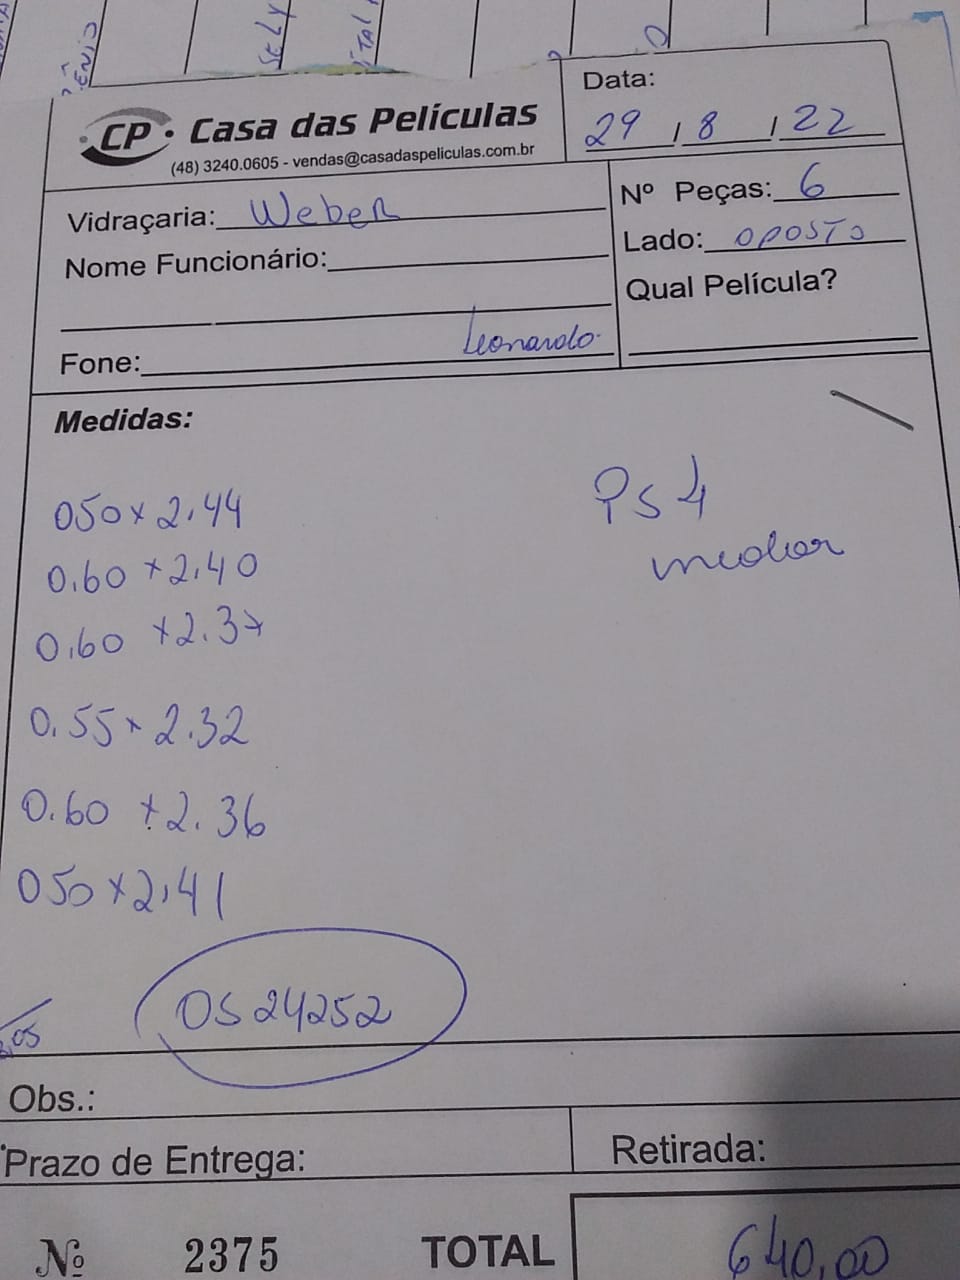 CP · Casa das Películas
(48) 3240.0605 - vendas@casadaspeliculas.com.br
Data:
29 / 8 / 22
Vidraçaria: Weber
Nº Peças: 6
Nome Funcionário:
Lado: oposto
Qual Película?
Leonardo
Fone:
Medidas:
PS4
050 x 2.44
0.60 x 2.40
0.60 x 2.37
0.55 x 2.32
0.60 x 2.36
050 x 2.41
OS 24252
Obs.:
Prazo de Entrega:
Retirada:
Nº 2375
TOTAL 640,00